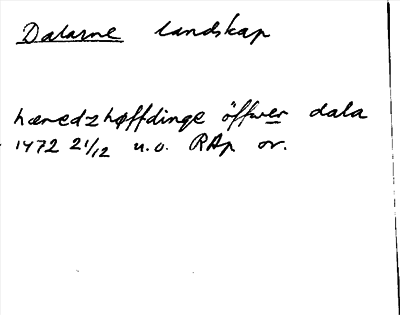 Dalarne landskap
hæredzhøffdinge öffwer dala
1472 21/12 u.o. RAp or.